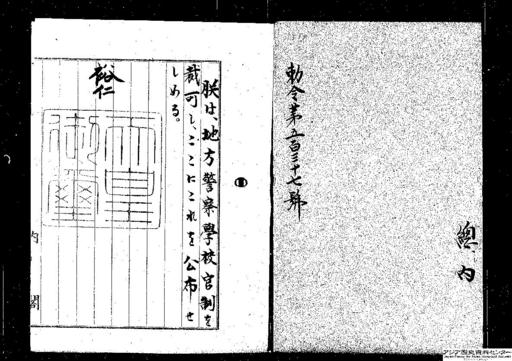 勅令第五百三十七號
總、内
朕は、地方警察學校官制を
裁可し、ここにこれを公布せ
しめる。
裕仁
天皇御璽
内閣
アジア歴史資料センター